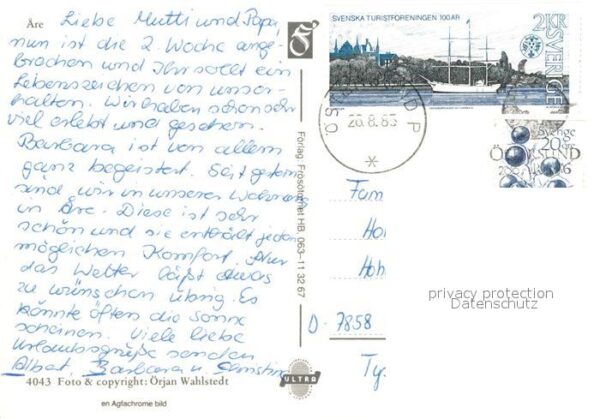 Åre
Liebe Mutti und Papa,
nun ist die 2. Woche ange-
brochen und Ihr sollt ein
Lebenszeichen von uns er-
halten. Wir haben schon sehr
viel erlebt und gesehen.
Barbara ist von allem
ganz begeistert. Seit gestern
sind wir in unserer Wohnung
in Åre. Diese ist sehr
schön und sie enthält jeden
möglichen Komfort. Nur
das Wetter läßt etwas
zu wünschen übrig. Es
könnte öfter die Sonne
scheinen. Viele liebe
Urlaubsgrüße senden
Barbara u. Christin
4043 Foto & copyright: Örjan Wahlstedt
en Agfachrome bild
ULTRA
Förlag: Frosötornet HB, 063-11 32 67
SVENSKA TURISTFORENINGEN 100 ÅR
2 KR
SVERIGE
Sverige
20 öre
ÖSTERSUND
Fam
Hol
Hoh
D-7858
privacy protection
Datenschutz